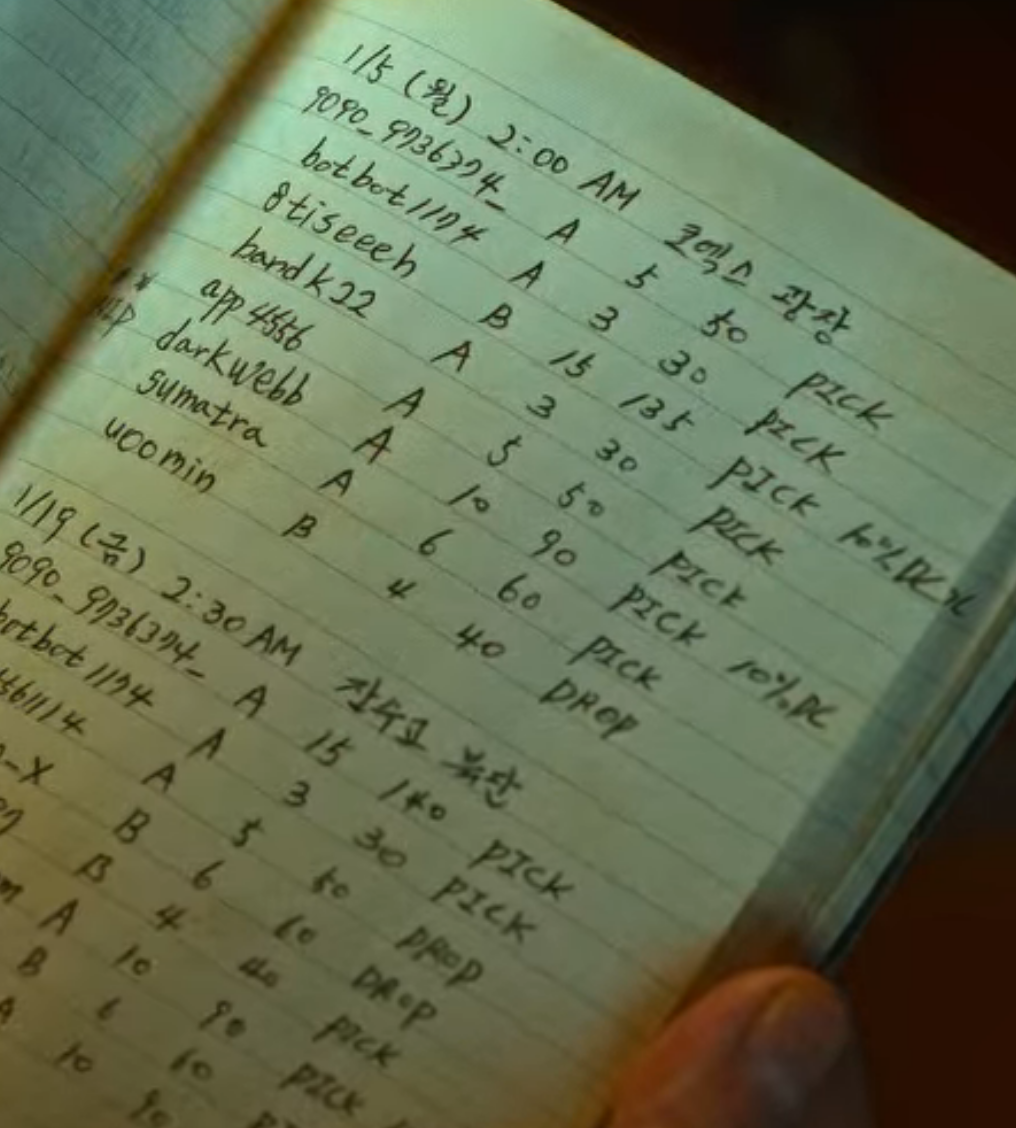 1/5 (월) 2:00 AM 코엑스 광장
9090_9736374_ A 5 50 PICK
botbot1174 A 3 30 PICK
8tiseeeh B 15 135 PICK 10% DC
bandk22 A 3 30 PICK
app4556 A 5 50 PICK
darkwebb A 10 90 PICK 10% DC
sumatra A 6 60 PICK
uoomin B 4 40 DROP
1/19 (금) 2:30 AM
9090_9736374_ A 15 140 PICK
botbot1174 A 3 30 PICK
A 5 50 DROP
-X B 6 60 DROP
B 4 40 PICK
A 10 90 PICK
B 6 60
A 10 90